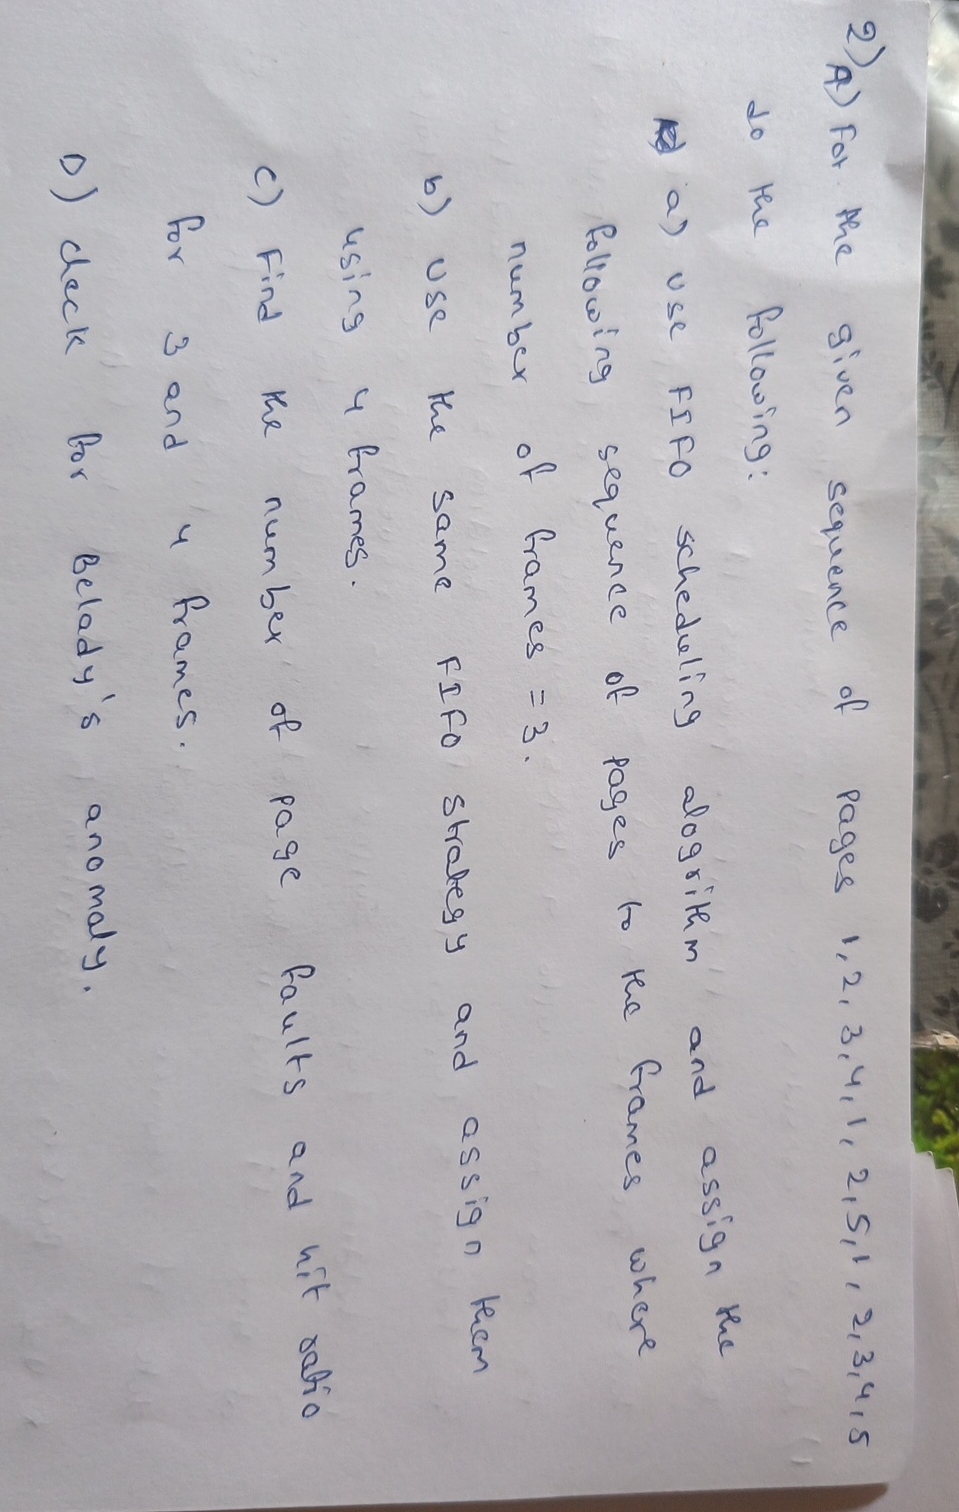 2) A) For the given sequence of pages 1, 2, 3, 4, 1, 2, 5, 1, 2, 3, 4, 5
do the following:
a) Use FIFO scheduling alogrithm and assign the
following sequence of pages to the frames where
number of frames = 3.
b) Use the same FIFO strategy and assign them
using 4 frames.
c) Find the number of page faults and hit ratio
for 3 and 4 frames.
D) check for Belady's anomaly.